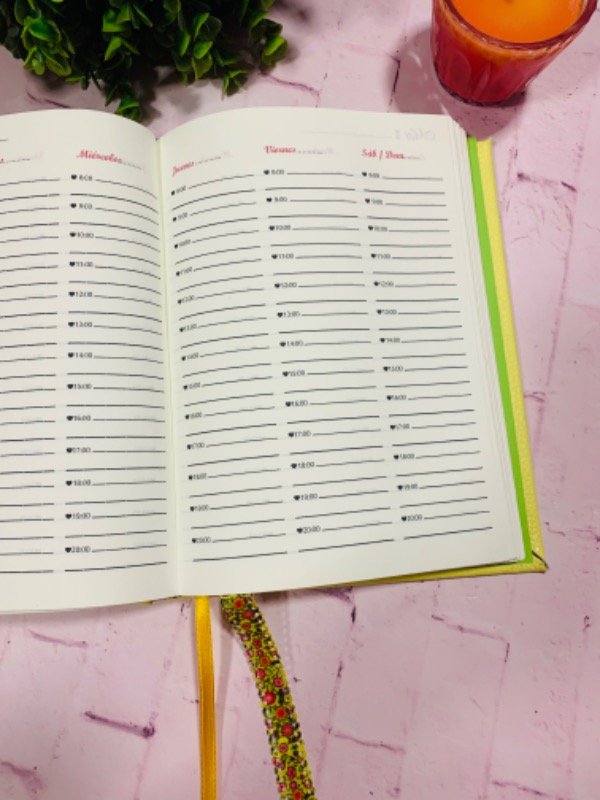 Miércoles
8:00
9:00
10:00
11:00
12:00
13:00
14:00
15:00
16:00
17:00
18:00
19:00
20:00
Jueves
8:00
9:00
10:00
11:00
12:00
13:00
14:00
15:00
16:00
17:00
18:00
19:00
20:00
Viernes
8:00
9:00
10:00
11:00
12:00
13:00
14:00
15:00
16:00
17:00
18:00
19:00
20:00
Sáb / Dom
8:00
9:00
10:00
11:00
12:00
13:00
14:00
15:00
16:00
17:00
18:00
19:00
20:00